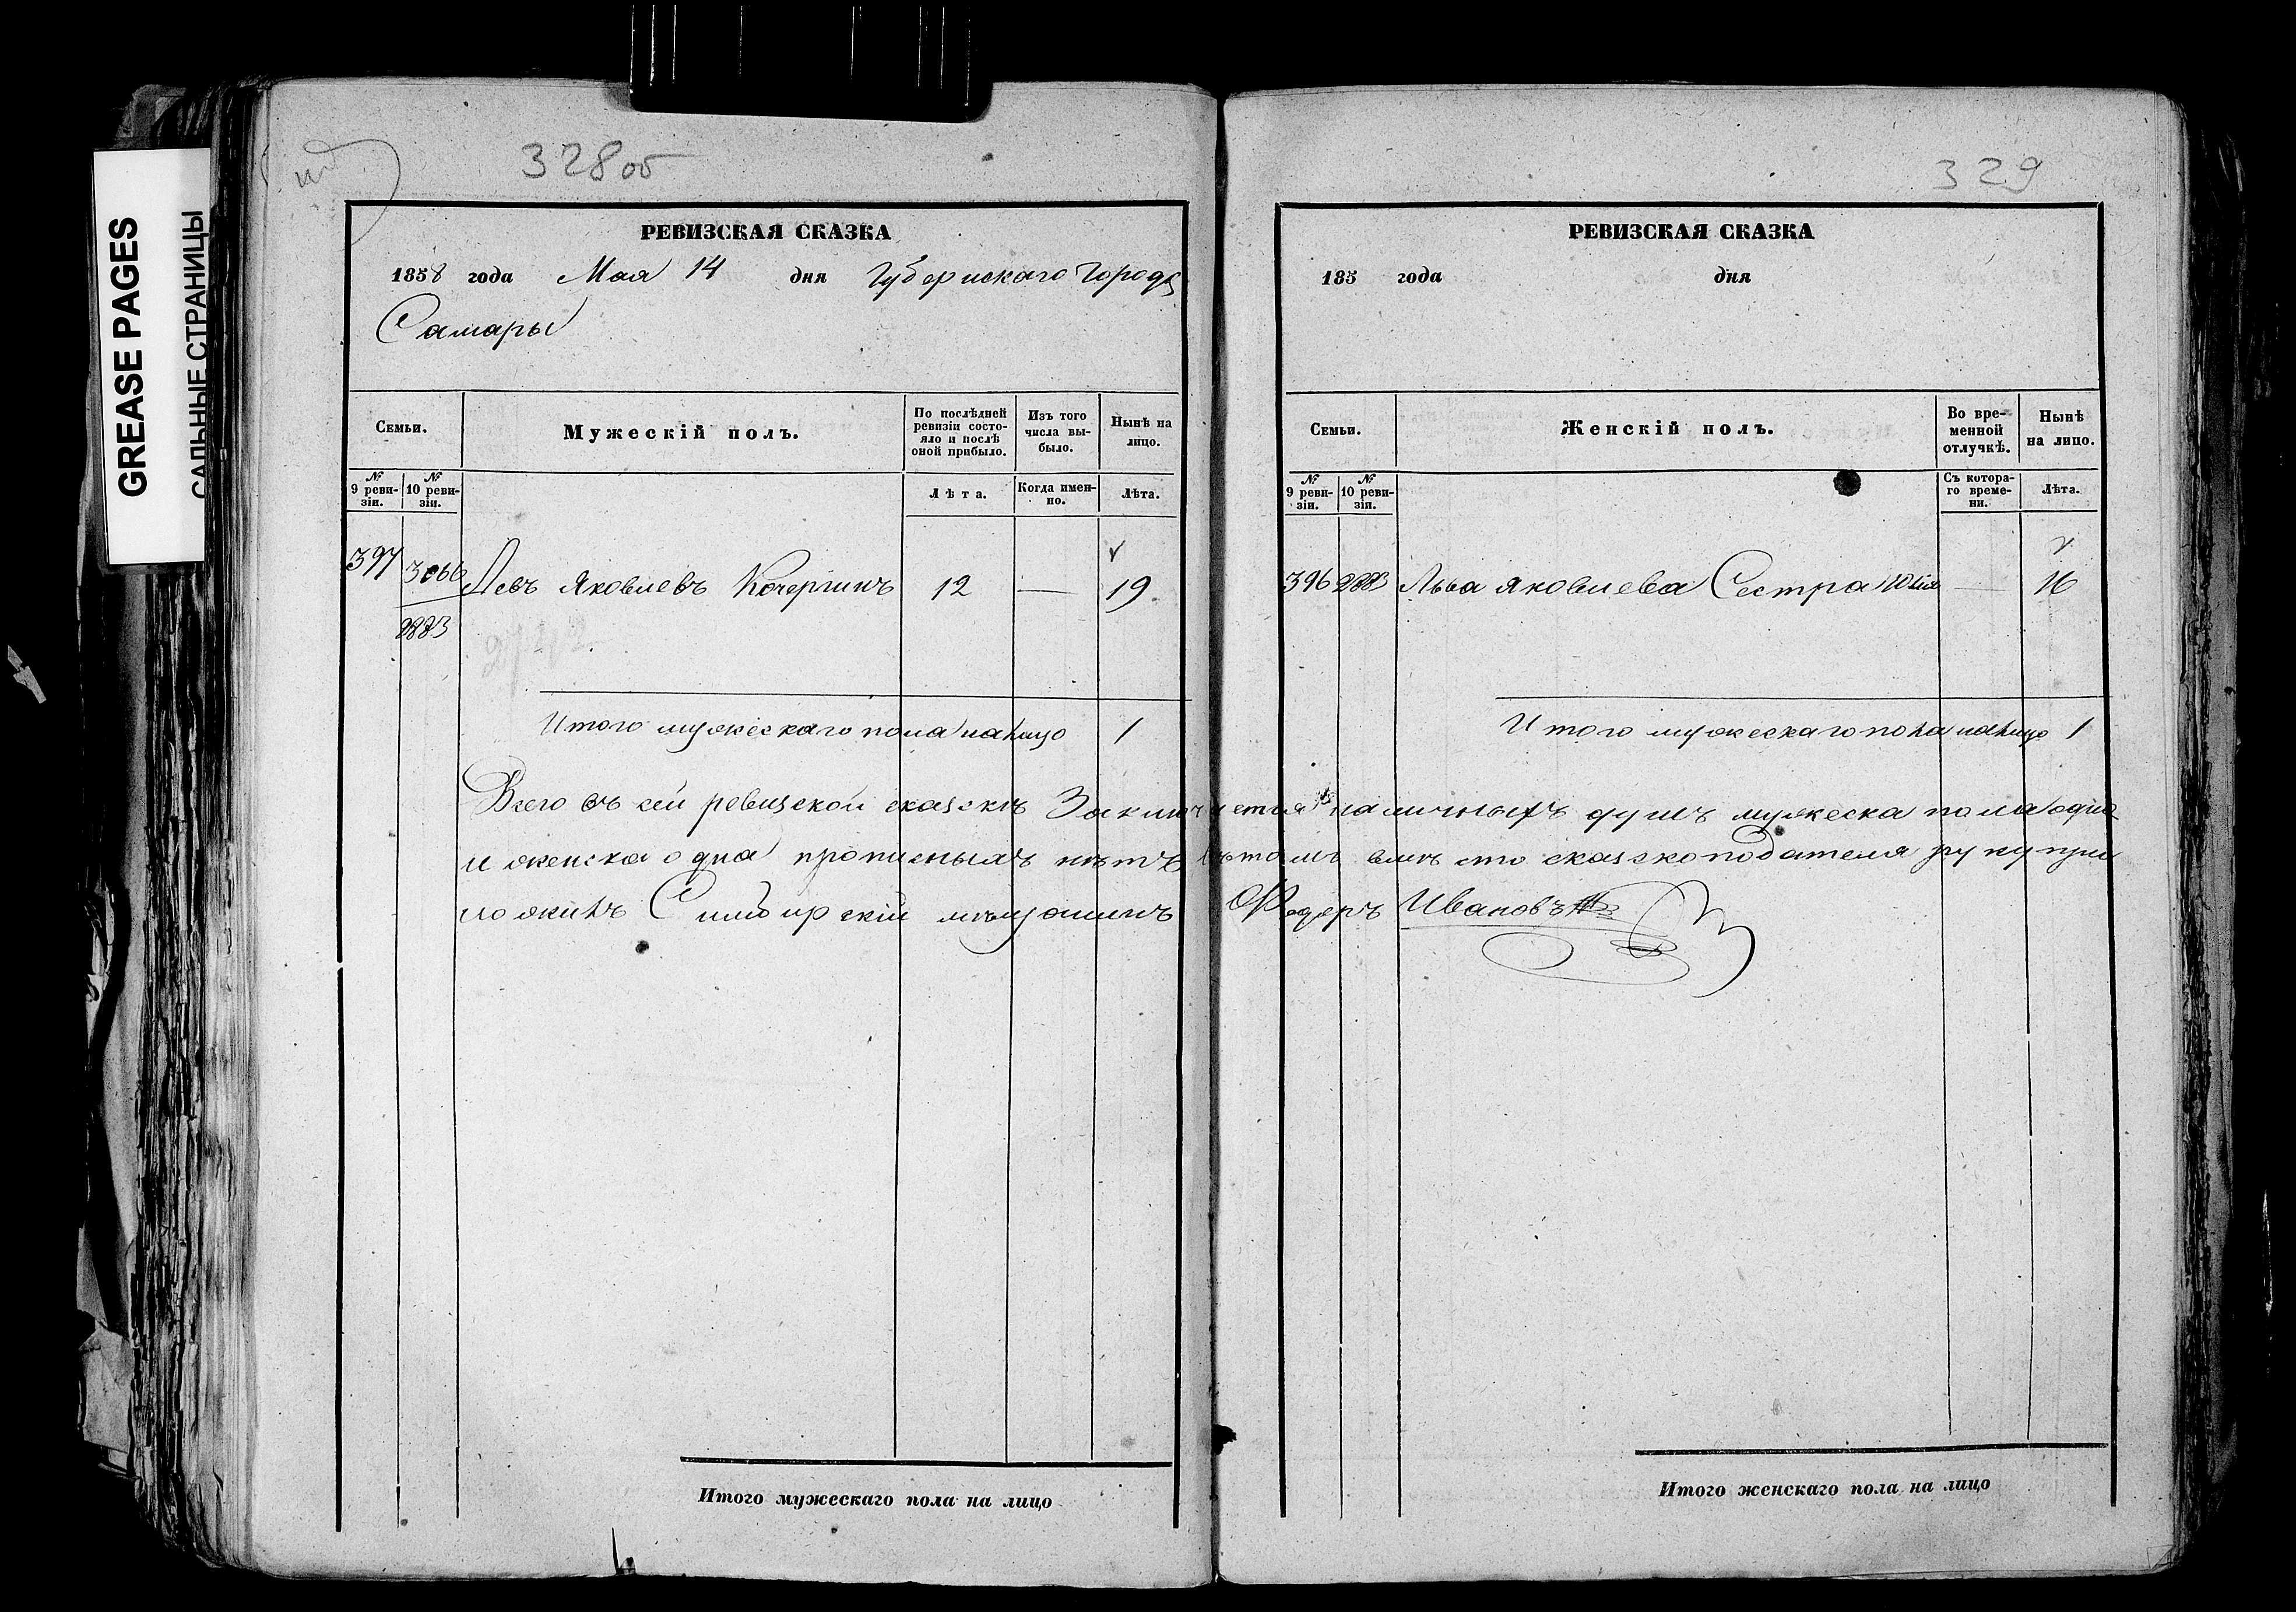 GREASE PAGES
САЛЬНЫЕ СТРАНИЦЫ
328 об
РЕВИЗСКАЯ СКАЗКА
1858 года Мая 14 дня Губернскаго Города
Самары
Семьи.
Мужескій полъ.
По послѣдней ревизіи состояло и послѣ оной прибыло.
Изъ того числа выбыло.
Нынѣ на лицо.
№ 9 ревизіи.
№ 10 ревизіи.
Лѣта.
Когда именно.
Лѣта.
397 3066 Левъ Яковлевъ Кочергинъ 12 — 19
2883
Итого мужескаго пола налицо 1
329
РЕВИЗСКАЯ СКАЗКА
185 года дня
Семьи.
Женскій полъ.
Во временной отлучкѣ.
Нынѣ на лицо.
№ 9 ревизіи.
№ 10 ревизіи.
Съ котораго времени.
Лѣта.
396 2883 Льва Яковлева Сестра Юлія — 16
Итого мужескаго пола налицо 1
Всего въ сей ревизской сказскѣ Заключается наличныхъ душъ мужеска пола одна
и женска одна прописныхъ нѣтъ вѣтомъ вмѣсто сказскоподателя руку при
ложилъ Симбирскій мѣщанинъ Федеръ Ивановъ
Итого мужескаго пола на лицо
Итого женскаго пола на лицо